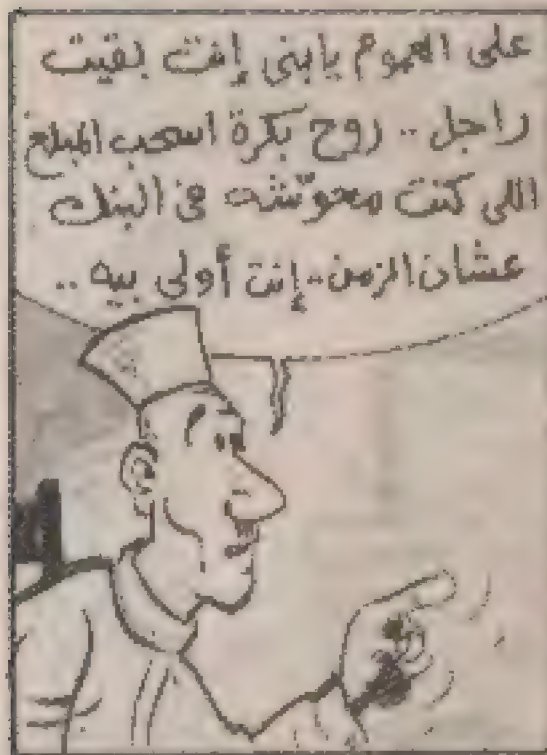 على العموم يا بنى إنت بقيت
راجل .. روح بكرة اسحب المبلغ
اللى كنت محوّشه فى البنك
عشان الزمن .. إنت أولى بيه ..